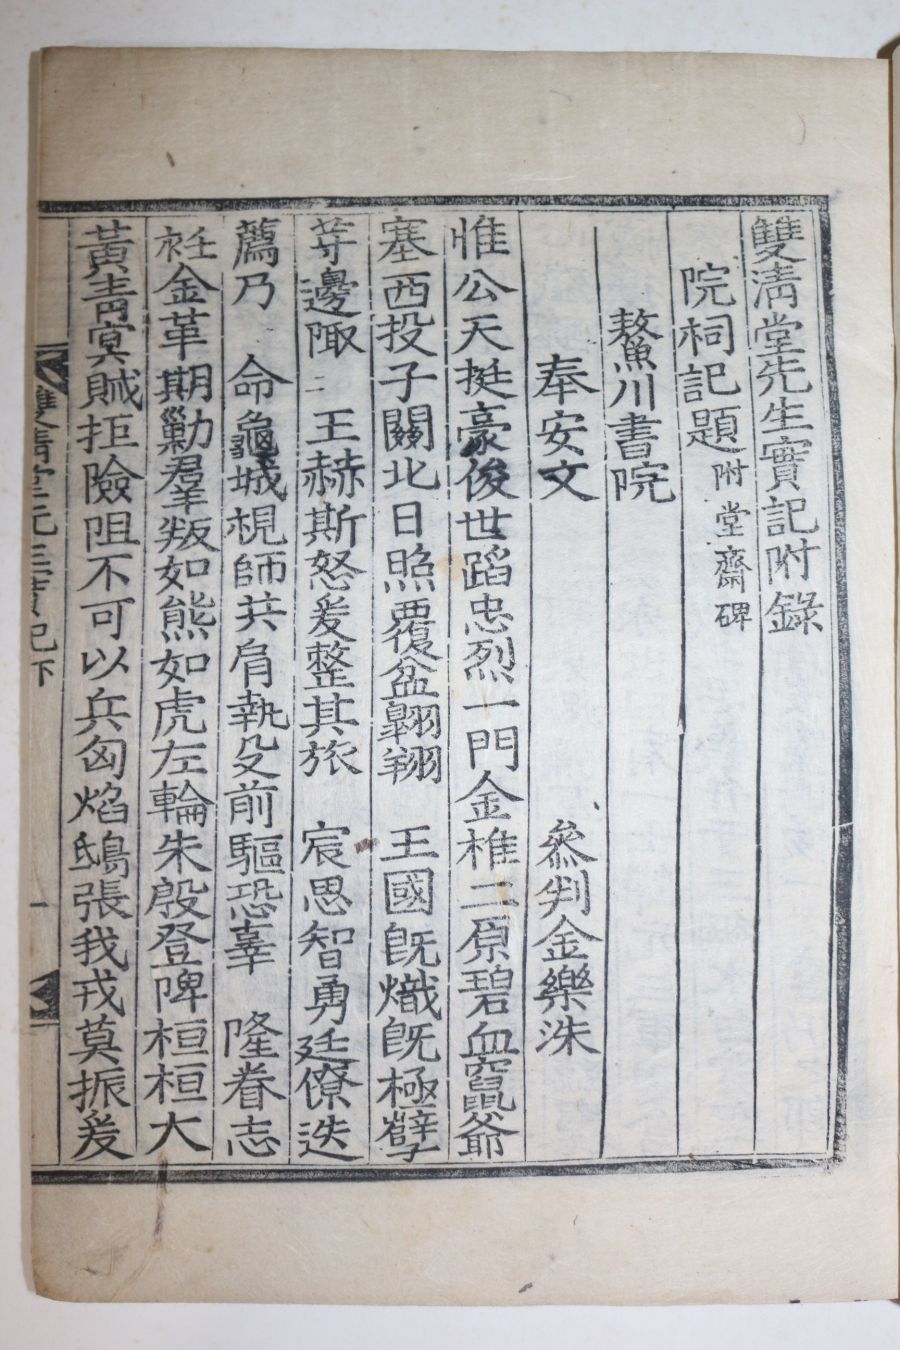 雙淸堂先生實記附錄
院祠記題附堂齋碑
鰲川書院
奉安文 叅判金樂洙
惟公天挺豪俊世蹈忠烈一門金椎二原碧血竄爺
塞西投子關北日照覆盆翱翔 王國旣熾旣極孼
芽邊陬 王赫斯怒爰整其旅 宸思智勇廷僚迭
薦乃 命龜城梘師共肩執殳前驅恐辜 隆眷志
衽金革期勦羣叛如熊如虎左輪朱殷登陴桓桓大
黃靑冥賊拒險阻不可以兵匈焰鴟張我戎莫振爰